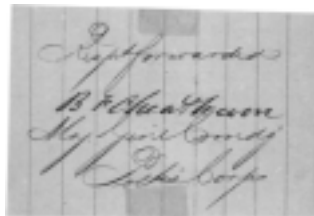 Respt forwarded
B F Cheatham
Maj Genl Comdg
Corps